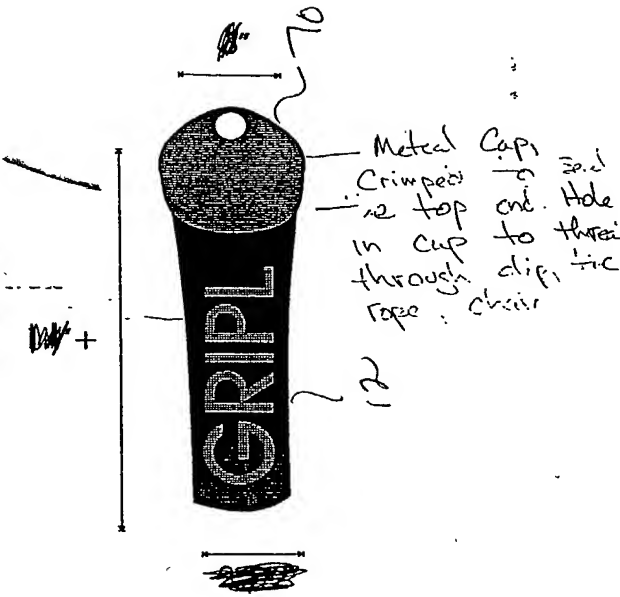 10
Metal Cap,
Crimped to
top end. Hole
in cap to thread
through clip, tie
rope, chain
+
GRIPL
12